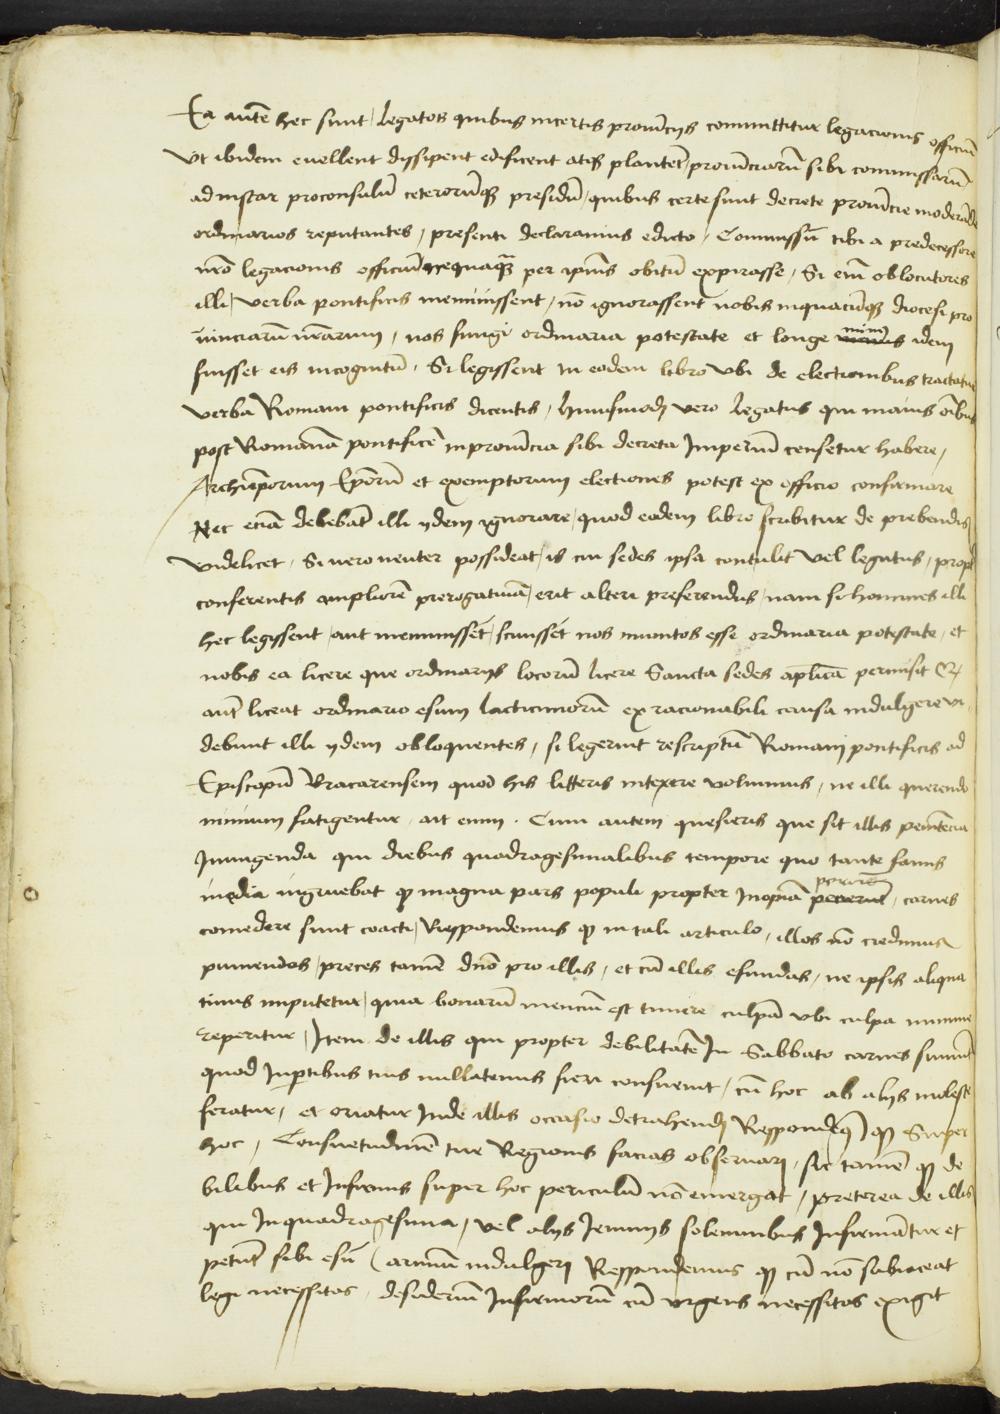 Ea autē hec sunt / Legatos quibus incertis prouīcijs committitur legacionis officiū
Vt ibidem euellent dissipent edificent atq; plantet / prouīciarū sibi commissarū
ad instar proconsulū ceterorūq; presidū / quibus certe sunt decrete prouīcie moderāde
ordinarios reputantes / presenti declaramus edicto / Commissū tibi a predecessore
nr̄o legacionis officiū nequaq̄ per ipius obitū expirasse / Si em̄ oblocutores
illi / verba pontificis meminissent / nō ignorassent nobis in quacūq; diocesi pro
uinciarū nr̄arum / nos fungi ordinaria potestate et longe minus idem
fuisset eis incognitū . Si legissent in eodem libro vbi de electionibus tractatur
verba Romani pontificis dicentis / Huiusmodj vero Legatus qui maius oībus
post Romanū pontificē in prouīncia sibi decreta Imperiū censetur habere /
Archiēporum Ep̄orū et exemptorum electiones potest ex officio confirmare
Nec eciā debebāt illi ydem ignorare / quod eodem libro scribitur de prebendis
videlicet . Si uero neuter possideat / is cui sedes ipsa contulit vel legatus / propt
conferentis ampliorē prerogatiuā / erit alteri preferendus / nam si homines illi
hec legissent / aut meminissēt / sciuissēt nos munitos esse ordinaria potestate / et
nobis ea licere que ordinarijs locorū licere Sancta sedes aplica permisit Q
aut liceat ordinario esum lacticiniorū ex racionabili causa indulgere vi
debunt illi ydem obloquentes / si legerint rescriptū Romani pontificis ad
Episcopū Bracarensem quod his litteris intexere volumus / ne illi querendo
nimium fatigentur . ait enim . Cum autem quesieris que sit illis penitēcia
Iniungenda qui diebus quadragesimalibus tempore quo tante famis
inedia ingruebat q magna pars populi propter Inopiā , carnes
comedere sunt coacti / Respondemus q in tali articulo / illos nō credimus
puniendos / preces tamē dn̄o pro illis / et cū illis efundas / ne ipsis aliqua
tinus imputetur / quia bonarū menciū est timere culpā vbi culpa minime
reperitur / Item de illis qui propter debilitatē In Sabbato carnes sumūt
quod In ptibus tuis nullatenus fieri consueuit / cū hoc ab alijs moleste
feratur / et oriatur Inde illis occasio detrahendj Respondeq q Super
hoc / Consuetudinē tue Regionis facias obseruarj / sic tamē q de
bilibus et Infirmis super hoc periculū nō emergat / Preterea de illis
qui In quadragesima / vel alijs Ieiunijs solemnibus Infirmātur et
petūt sibi esū Carnium indulgerj Respondemus q cū nō subiaceat
legi necessitas / desideriū Infirmorū cū vrgens necessitas exigit